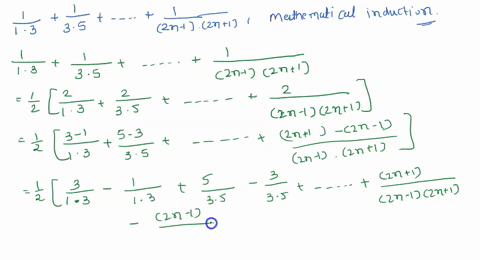 1/(1·3) + 1/(3·5) + ----- + 1/((2n-1)·(2n+1)), mathematical induction.
1/(1·3) + 1/(3·5) + ..... + 1/((2n-1)(2n+1))
= 1/2 [ 2/(1·3) + 2/(3·5) + ------ + 2/((2n-1)(2n+1)) ]
= 1/2 [ (3-1)/(1·3) + (5-3)/(3·5) + ----- + ((2n+1) - (2n-1))/((2n-1)·(2n+1)) ]
= 1/2 [ 3/(1·3) - 1/(1·3) + 5/(3·5) - 3/(3·5) + ..... + (2n+1)/((2n-1)(2n+1))
- (2n-1)/